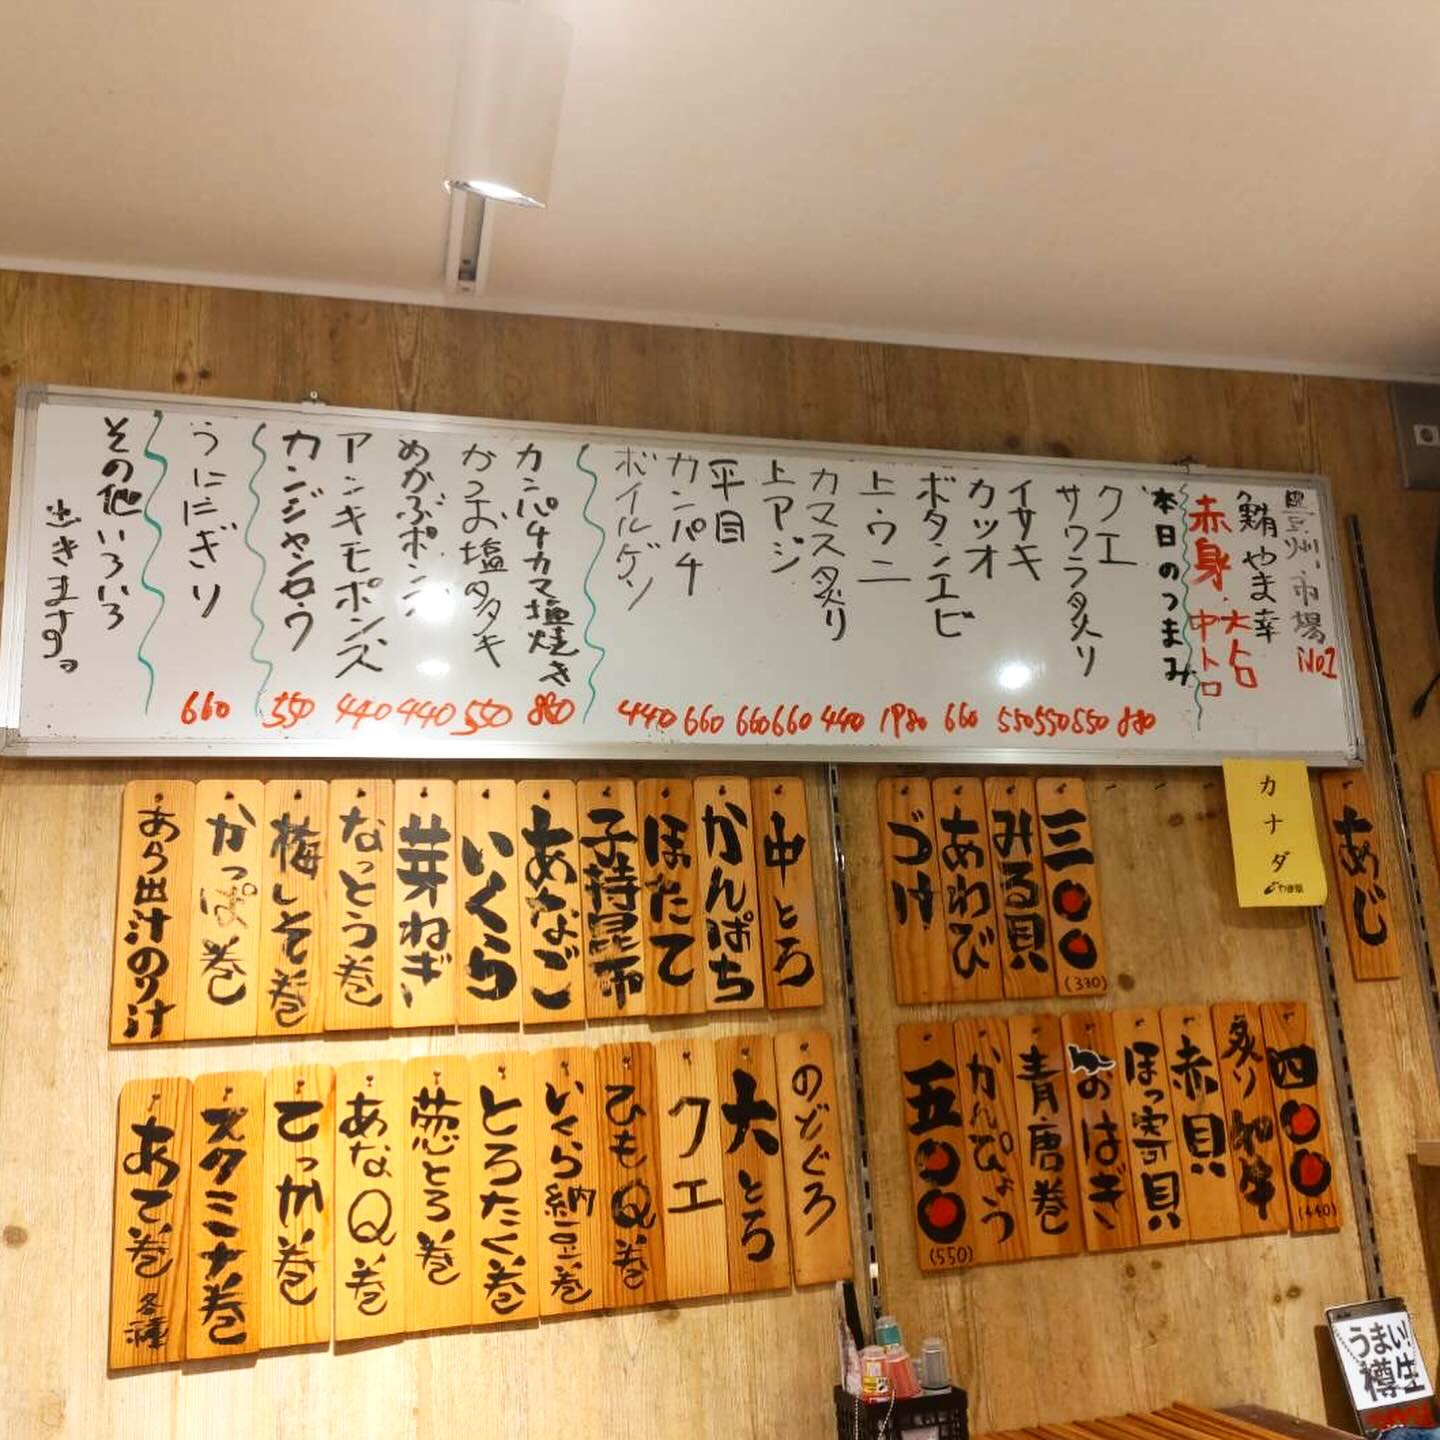 豊洲市場No1
鮪やま幸
大トロ
赤身・中トロ
本日のつまみ
クエ 880
サワラタタキ 550
イサキ 550
カツオ 550
ボタンエビ 660
上ウニ 1980
カマス炙り 440
上アジ 660
平目 660
カンパチ 660
ボイルゲソ 440
カンパチカマ塩焼き 880
かつお塩タタキ 550
めかぶポンズ 440
アンキモポンズ 440
カンジャンロウ 550
うににぎり 660
その他いろいろ
出きます。
カナダ
あじ
三〇〇
(330)
みる貝
あわび
づけ
中とろ
かんぱち
ほたて
子持昆布
あなご
いくら
芽ねぎ
なっとう巻
梅しそ巻
かっぱ巻
あら出汁のり汁
四〇〇
(440)
炙り和牛
赤貝
ほっき貝
おはぎ
青唐巻
かんぴょう
五〇〇
(550)
のどぐろ
大とろ
クエ
ひもQ巻
いくら納豆巻
とろたく巻
葱とろ巻
あなQ巻
てっか巻
ズクミナ巻
あて巻 各種
うまい!
樽生